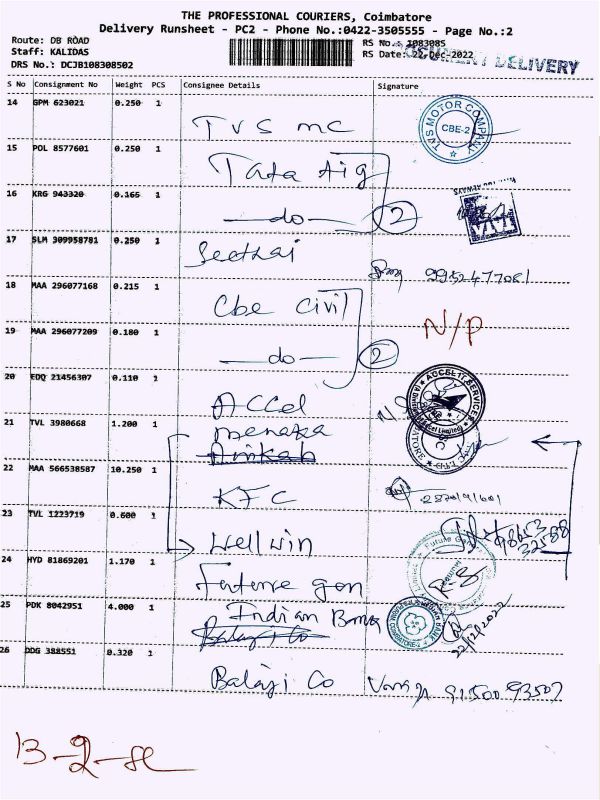 THE PROFESSIONAL COURIERS, Coimbatore
Delivery Runsheet - PC2 - Phone No.:0422-3505555 - Page No.:2
Route: DB ROAD
RS No.: 1083085
Staff: KALIDAS
RS Date: 22-Dec-2022
DELIVERY
DRS No.: DCJB108308502
S No Consignment No Weight PCS Consignee Details Signature
14 GPM 623021 0.250 1
TVS mc
TVS MOTOR COMPANY
CBE-2
15 POL 8577601 0.250 1
Tata Aig
16 KRG 943320 0.165 1
—do— 2
17 SLM 309958781 0.250 1
Seethai
9952477081
18 MAA 296077168 0.215 1
Cbe Civil
N/P
19 MAA 296077209 0.180 1
—do— 2
20 EDQ 21456307 0.110 1
ACCel
ACCEL IT SERVICES
21 TVL 3980668 1.200 1
menaka
22 MAA 566538587 10.250 1
KFC
23 TVL 1223719 0.600 1
Wellwin
24 HYD 81869201 1.170 1
Future gen
25 PDK 8042951 4.000 1
Indian Bank
Balaji Co
22/12/2022
26 DDG 388551 0.320 1
Balaji Co
91500 93507